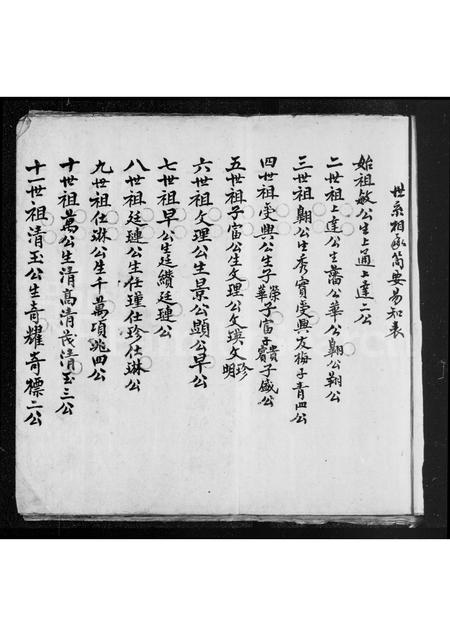 世系相承簡要易知表
始祖敏公生上通上達二公
二世祖上達公生藩公華公翱公翱公
三世祖翱公生秀實受興友梅子青四公
四世祖受興公生子榮子華子富子貴子賓子盛公
五世祖子富公生文理公文瑛文珍文明
六世祖文理公生景公顯公早公
七世祖早公生廷纘廷璉公
八世祖廷璉公生仕瑾仕珍仕琳公
九世祖仕琳公生千萬頃兆四公
十世祖萬公生清高清茂清玉三公
十一世祖清玉公生奇耀奇標二公